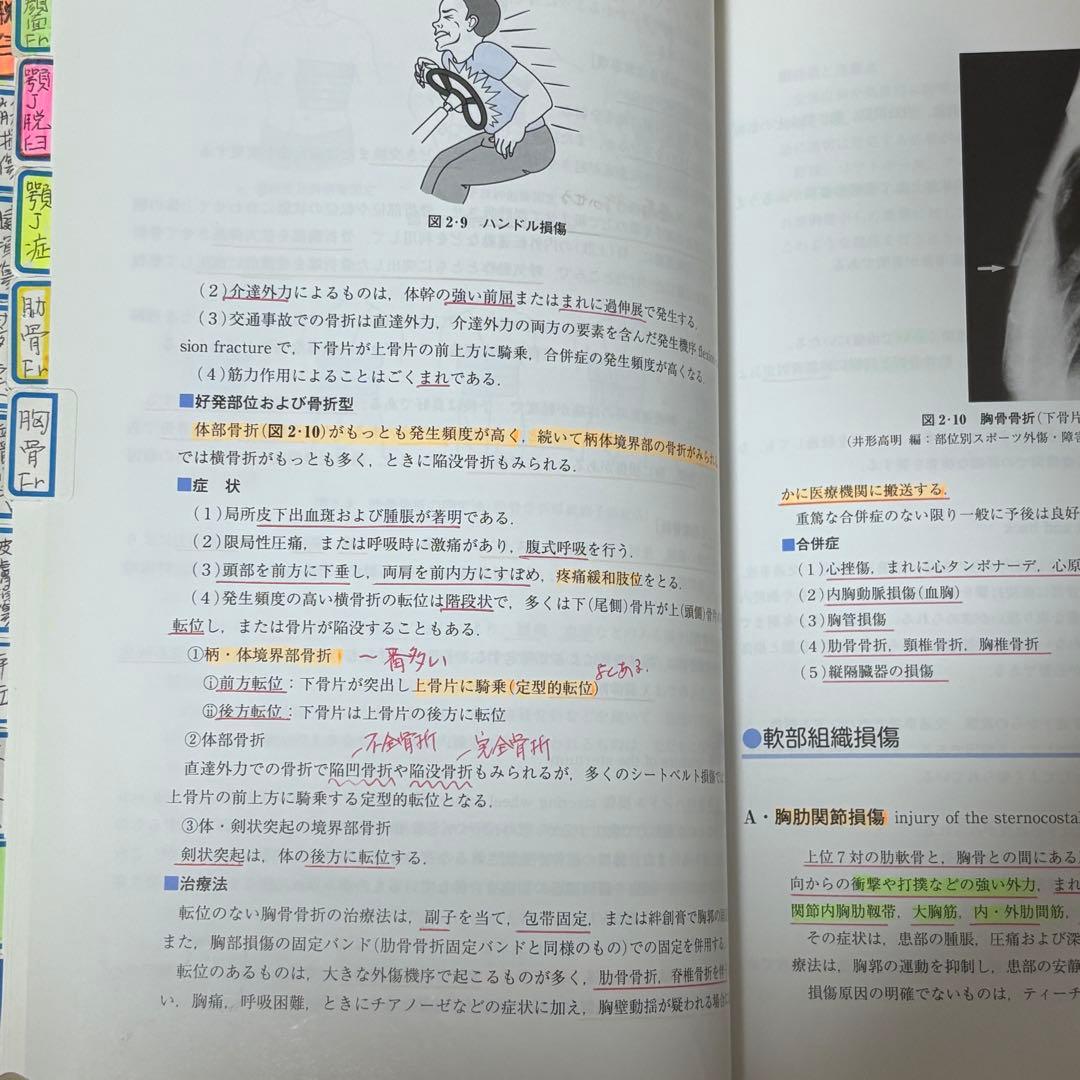 顔面Fr
顎J脱臼
顎J症
肋骨Fr
胸骨Fr
図2・9　ハンドル損傷
(2)介達外力によるものは，体幹の強い前屈またはまれに過伸展で発生する．
(3)交通事故での骨折は直達外力，介達外力の両方の要素を含んだ発生機序
sion fractureで，下骨片が上骨片の前上方に騎乗，合併症の発生頻度が高くなる．
(4)筋力作用によることはごくまれである．
■好発部位および骨折型
体部骨折(図2・10)がもっとも発生頻度が高く，続いて柄体境界部の骨折がみられ
では横骨折がもっとも多く，ときに陥没骨折もみられる．
■症　状
(1)局所皮下出血斑および腫脹が著明である．
(2)限局性圧痛，または呼吸時に激痛があり，腹式呼吸を行う．
(3)頭部を前方に下垂し，両肩を前内方にすぼめ，疼痛緩和肢位をとる．
(4)発生頻度の高い横骨折の転位は階段状で，多くは下(尾側)骨片が上(頭側)骨片
転位し，または骨片が陥没することもある．
①柄・体境界部骨折 〜番多い
ⓘ前方転位：下骨片が突出し上骨片に騎乗(定型的転位) よくある．
ⓘⓘ後方転位：下骨片は上骨片の後方に転位
②体部骨折
不全骨折 完全骨折
直達外力での骨折で陥凹骨折や陥没骨折もみられるが，多くのシートベルト損傷で
上骨片の前上方に騎乗する定型的転位となる．
③体・剣状突起の境界部骨折
剣状突起は，体の後方に転位する．
■治療法
転位のない胸骨骨折の治療法は，副子を当て，包帯固定，または絆創膏で胸郭の
また，胸部損傷の固定バンド(肋骨骨折固定バンドと同様のもの)での固定を併用する．
転位のあるものは，大きな外傷機序で起こるものが多く，肋骨骨折，脊椎骨折を伴
い，胸痛，呼吸困難，ときにチアノーゼなどの症状に加え，胸壁動揺が疑われる場合
図2・10　胸骨骨折(下骨片
(井形高明 編：部位別スポーツ外傷・障害
かに医療機関に搬送する．
重篤な合併症のない限り一般に予後は良好
■合併症
(1)心挫傷，まれに心タンポナーデ，心原
(2)内胸動脈損傷(血胸)
(3)胸管損傷
(4)肋骨骨折，頸椎骨折，胸椎骨折
(5)縦隔臓器の損傷
●軟部組織損傷
A・胸肋関節損傷 injury of the sternocostal
上位7対の肋軟骨と，胸骨との間にある
向からの衝撃や打撲などの強い外力，まれ
関節内胸肋靱帯，大胸筋，内・外肋間筋，
その症状は，患部の腫脹，圧痛および深
療法は，胸郭の運動を抑制し，患部の安静
損傷原因の明確でないものは，ティーチ